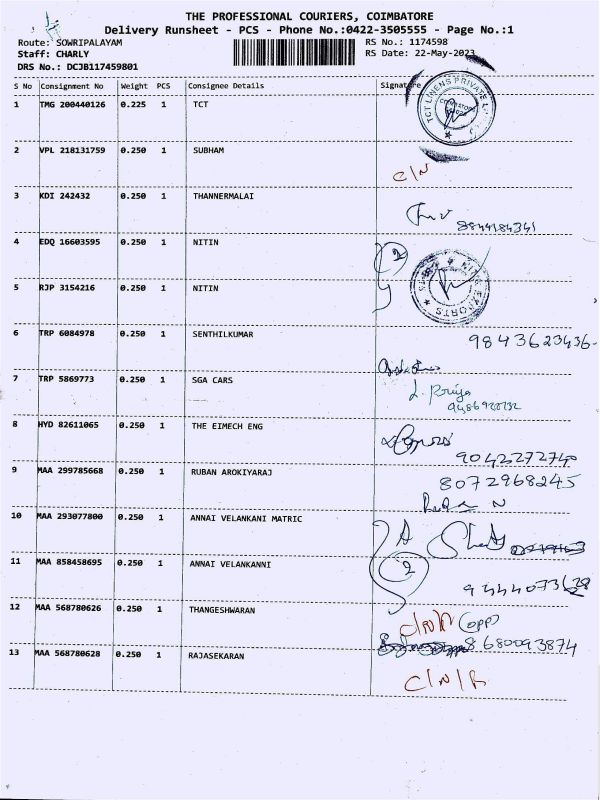 THE PROFESSIONAL COURIERS, COIMBATORE
Delivery Runsheet - PCS - Phone No.:0422-3505555 - Page No.:1
Route: SOWRIPALAYAM RS No.: 1174598
Staff: CHARLY RS Date: 22-May-2023
DRS No.: DCJB117459801
S No Consignment No Weight PCS Consignee Details Signature
1 TMG 200440126 0.225 1 TCT
TCT LINENS PRIVATE
2 VPL 218131759 0.250 1 SUBHAM
C/N
3 KDI 242432 0.250 1 THANNERMALAI
8844184341
4 EDQ 16603595 0.250 1 NITIN
2
5 RJP 3154216 0.250 1 NITIN
EXPORTS
6 TRP 6084978 0.250 1 SENTHILKUMAR
9843623436-
7 TRP 5869773 0.250 1 SGA CARS
L. Priya
8 HYD 82611065 0.250 1 THE EIMECH ENG
9042272740
9 MAA 299785668 0.250 1 RUBAN AROKIYARAJ
8072968245
10 MAA 293077800 0.250 1 ANNAI VELANKANI MATRIC
11 MAA 858458695 0.250 1 ANNAI VELANKANNI
2
12 MAA 568780626 0.250 1 THANGESHWARAN
C/N/R (opp)
8680093874
13 MAA 568780628 0.250 1 RAJASEKARAN
C/N/R